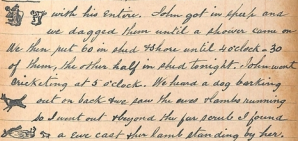 with his Entire. John got in sheep and
we dagged them until a shower came on
We then put 60 in shed & shore until 4 oclock - 30
of them, the other half in shed tonight. John went
cricketing at 5 oclock. We heard a dog barking
out on back & we saw the ewes & lambs running
so I went out & beyond the far scrub I found
a Ewe cast & her lamb standing by her.